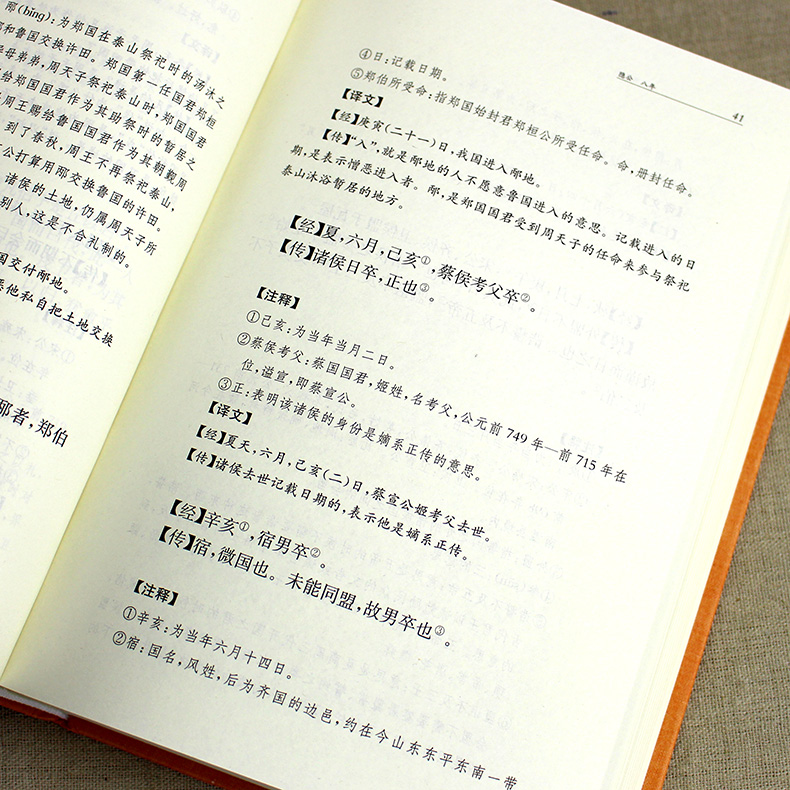 邴(bǐng):为郑国在泰山祭祀时的汤沐之
和鲁国交换许田。郑国第一任国君郑桓
母弟弟,周天子祭祀泰山时,郑国国君
给郑国国君作为其助祭时的暂居之
周王赐给鲁国国君作为其朝觐周
到了春秋,周王不再祭祀泰山,
公打算用邴交换鲁国的许田。
诸侯的土地,仍属周天子所
别人,这是不合礼制的。
国交付邴地。
恶他私自把土地交换
邴者,郑伯
隐公 八年
41
④日:记载日期。
⑤郑伯所受命:指郑国始封君郑桓公所受任命。命,册封任命。
【译文】
【经】庚寅(二十一)日,我国进入邴地。
【传】“入”,就是邴地的人不愿意鲁国进入的意思。记载进入的日
期,是表示憎恶进入者。邴,是郑国国君受到周天子的任命来参与祭祀
泰山沐浴暂居的地方。
【经】夏,六月,己亥①,蔡侯考父卒②。
【传】诸侯日卒,正也③。
【注释】
①己亥:为当年当月二日。
②蔡侯考父:蔡国国君,姬姓,名考父,公元前749年—前715年在
位,谥宣,即蔡宣公。
③正:表明该诸侯的身份是嫡系正传的意思。
【译文】
【经】夏天,六月,己亥(二)日,蔡宣公姬考父去世。
【传】诸侯去世记载日期的,表示他是嫡系正传。
【经】辛亥①,宿男卒②。
【传】宿,微国也。未能同盟,故男卒也③。
【注释】
①辛亥:为当年六月十四日。
②宿:国名,风姓,后为齐国的边邑,约在今山东东平东南一带